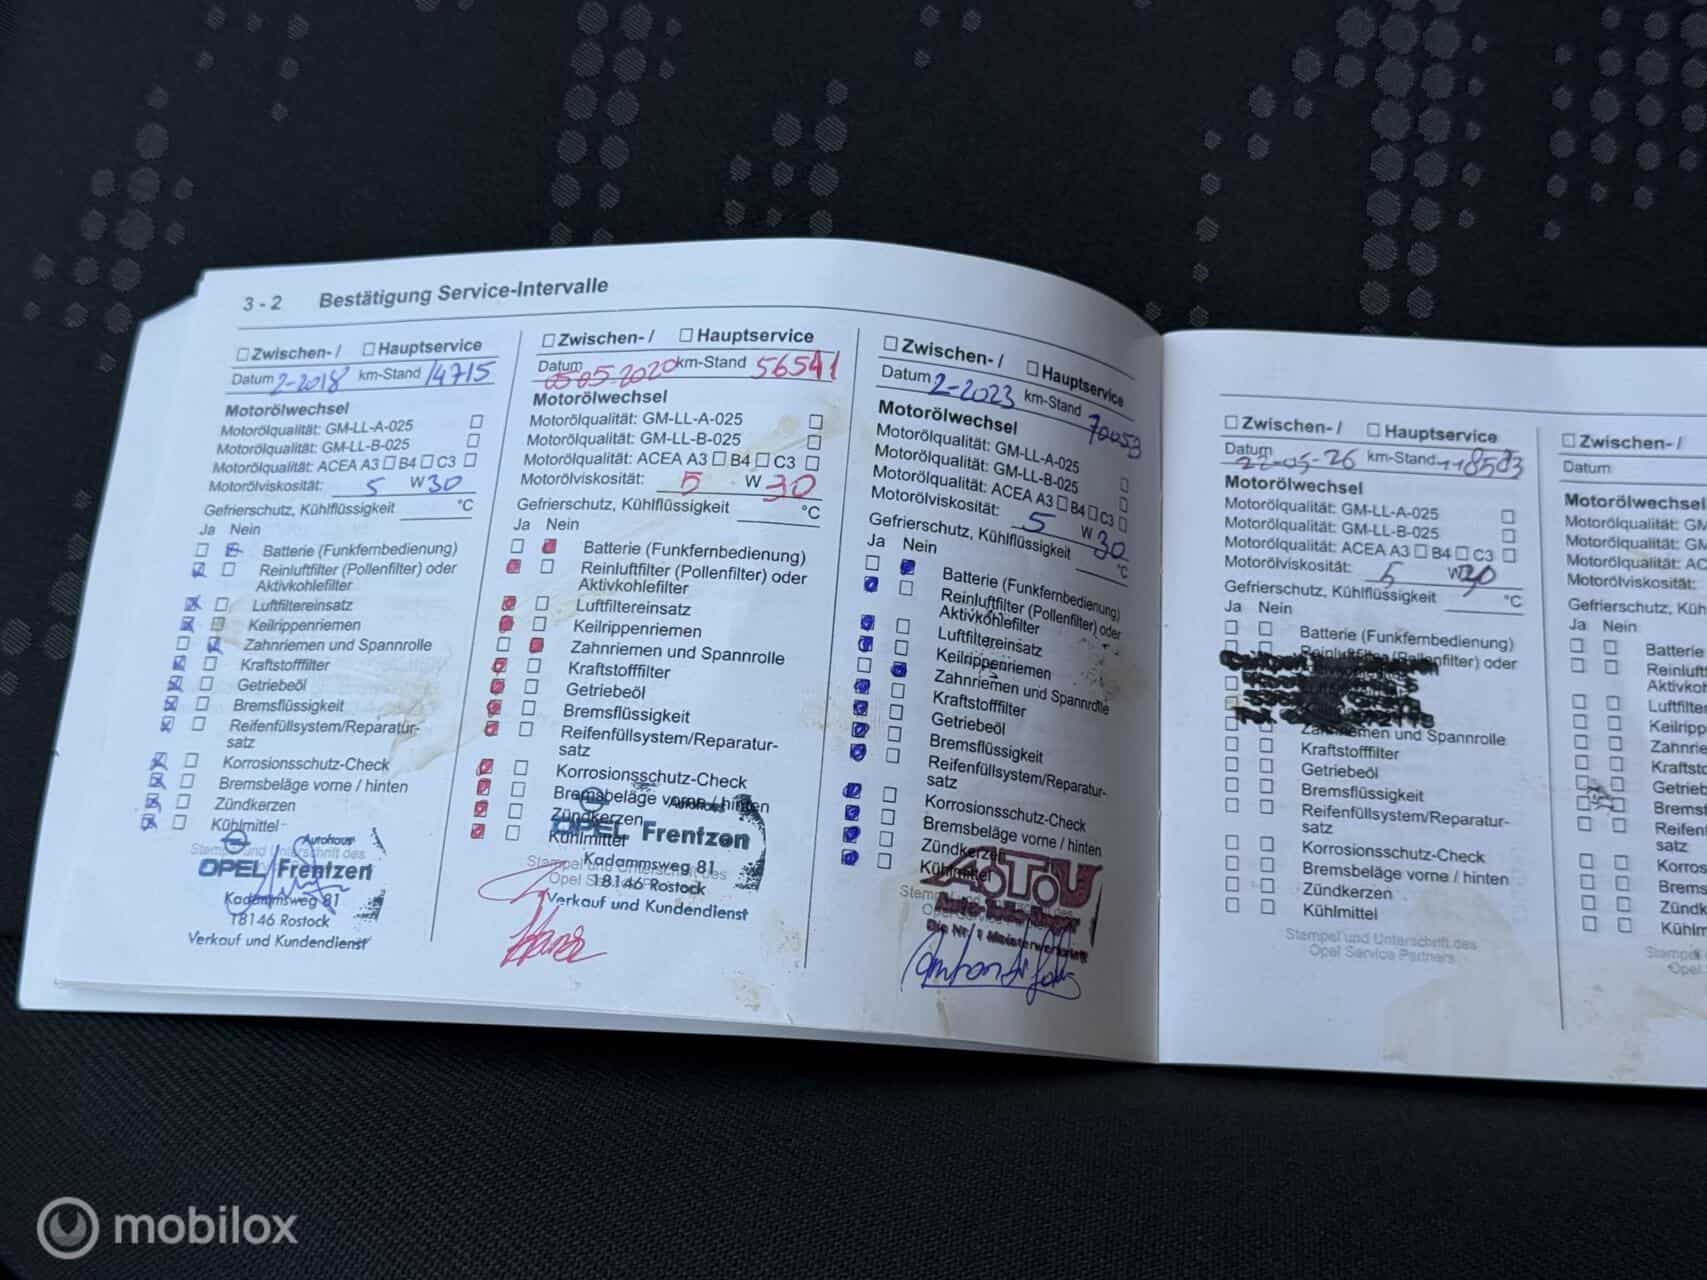 3 - 2 Bestätigung Service-Intervalle
Zwischen- / Hauptservice
Datum 2-2018 km-Stand 14715
Motorölwechsel
Motorölqualität: GM-LL-A-025
Motorölqualität: GM-LL-B-025
Motorölqualität: ACEA A3 B4 C3
Motorölviskosität: 5 W 30
Gefrierschutz, Kühlflüssigkeit °C
Ja Nein
Batterie (Funkfernbedienung)
Reinluftfilter (Pollenfilter) oder
Aktivkohlefilter
Luftfiltereinsatz
Keilrippenriemen
Zahnriemen und Spannrolle
Kraftstofffilter
Getriebeöl
Bremsflüssigkeit
Reifenfüllsystem/Reparatur-
satz
Korrosionsschutz-Check
Bremsbeläge vorne / hinten
Zündkerzen
Kühlmittel
Stempel und Unterschrift des
Autohaus
OPEL Frentzen
Kadammsweg 81
18146 Rostock
Verkauf und Kundendienst
Zwischen- / Hauptservice
Datum 05-05-2020 km-Stand 56541
Motorölwechsel
Motorölqualität: GM-LL-A-025
Motorölqualität: GM-LL-B-025
Motorölqualität: ACEA A3 B4 C3
Motorölviskosität: 5 W 30
Gefrierschutz, Kühlflüssigkeit °C
Ja Nein
Batterie (Funkfernbedienung)
Reinluftfilter (Pollenfilter) oder
Aktivkohlefilter
Luftfiltereinsatz
Keilrippenriemen
Zahnriemen und Spannrolle
Kraftstofffilter
Getriebeöl
Bremsflüssigkeit
Reifenfüllsystem/Reparatur-
satz
Korrosionsschutz-Check
Bremsbeläge vorne / hinten
Zündkerzen
Kühlmittel
Autohaus
OPEL Frentzen
Stempel und Unterschrift des
Opel Service
Kadammsweg 81
18146 Rostock
Verkauf und Kundendienst
Zwischen- / Hauptservice
Datum 2-2023 km-Stand 70053
Motorölwechsel
Motorölqualität: GM-LL-A-025
Motorölqualität: GM-LL-B-025
Motorölqualität: ACEA A3 B4 C3
Motorölviskosität: 5 W 30
Gefrierschutz, Kühlflüssigkeit °C
Ja Nein
Batterie (Funkfernbedienung)
Reinluftfilter (Pollenfilter) oder
Aktivkohlefilter
Luftfiltereinsatz
Keilrippenriemen
Zahnriemen und Spannrolle
Kraftstofffilter
Getriebeöl
Bremsflüssigkeit
Reifenfüllsystem/Reparatur-
satz
Korrosionsschutz-Check
Bremsbeläge vorne / hinten
Zündkerzen
Kühlmittel
A.T.U
Die Nr. 1 Meisterwerkstatt
Zwischen- / Hauptservice
Datum 22-05-26 km-Stand 118503
Motorölwechsel
Motorölqualität: GM-LL-A-025
Motorölqualität: GM-LL-B-025
Motorölqualität: ACEA A3 B4 C3
Motorölviskosität: 5 W 30
Gefrierschutz, Kühlflüssigkeit °C
Ja Nein
Batterie (Funkfernbedienung)
Reinluftfilter (Pollenfilter) oder
Zahnriemen und Spannrolle
Kraftstofffilter
Getriebeöl
Bremsflüssigkeit
Reifenfüllsystem/Reparatur-
satz
Korrosionsschutz-Check
Bremsbeläge vorne / hinten
Zündkerzen
Kühlmittel
Stempel und Unterschrift des
Opel Service Partners
Zwischen- /
Datum
Motorölwechsel
Motorölqualität: GM
Motorölqualität: GM
Motorölqualität: AC
Motorölviskosität:
Gefrierschutz, Küh
Ja Nein
Batterie
Reinluft
Aktivkoh
Luftfilter
Keilripp
Zahnrie
Kraftsto
Getrieb
Brems
Reifen
satz
Korros
Brems
Zündk
Kühlm
Stempel
Opel
mobilox